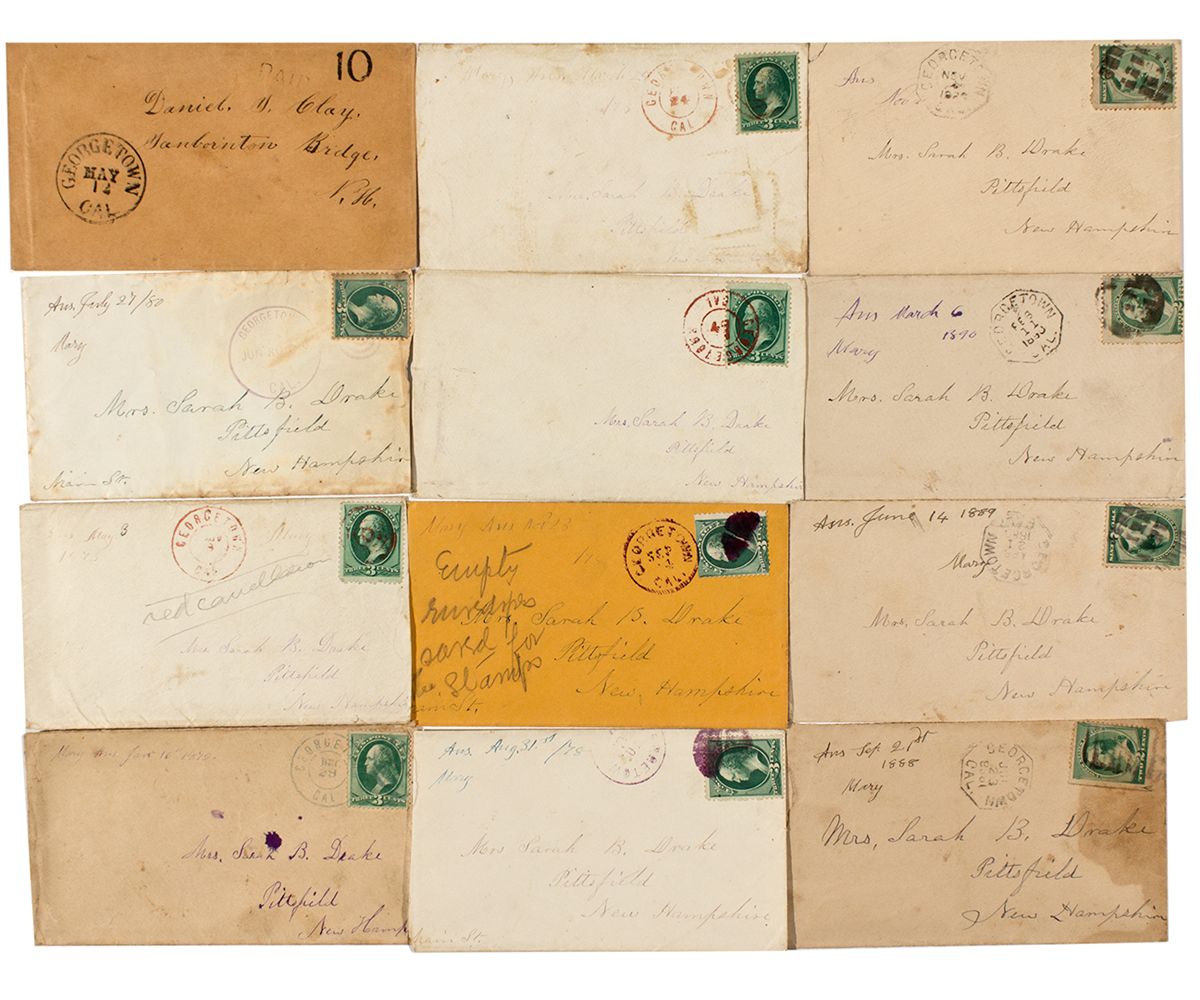 PAID
10
Daniel S. Clay,
Sanbornton Bridge,
N. H.
GEORGETOWN
MAY
12
CAL
GEORGETOWN
24
CAL
THREE CENTS
Mrs. Sarah B. Drake
Pittsfield
Ans
Nov
GEORGETOWN
NOV
CAL.
Mrs. Sarah B. Drake
Pittsfield
New Hampshire
Ans. July 27/80
Mary
GEORGETOWN
JUN
CAL.
Mrs. Sarah B. Drake
Pittsfield
New Hampshire
Main St.
Mrs. Sarah B. Drake
Pittsfield
New Hampshire
Ans March 6
1890
Mary
GEORGETOWN
CAL.
Mrs. Sarah B. Drake
Pittsfield
New Hampshire
Ans May 3
Mary
GEORGETOWN
CAL
THREE CENTS
red cancellation
Mrs. Sarah B. Drake
Pittsfield
New Hampshire
Mary Ans
GEORGETOWN
SEP
CAL.
Empty
saved for
Stamps
Mrs. Sarah B. Drake
Pittsfield
New Hampshire
Ans. June 14 1889
Mary
GEORGETOWN
Mrs. Sarah B. Drake
Pittsfield
New Hampshire
Mary Ans.
GEORGETOWN
DEC
CAL
THREE CENTS
Mrs. Sarah B. Drake
Pittsfield
New Hamp
Ans Aug 31st /78
Mary
Mrs Sarah B. Drake
Pittsfield
New Hampshire
Main St.
Ans Sep 21st
1888
Mary
GEORGETOWN
23
CAL.
Mrs. Sarah B. Drake
Pittsfield
New Hampshire